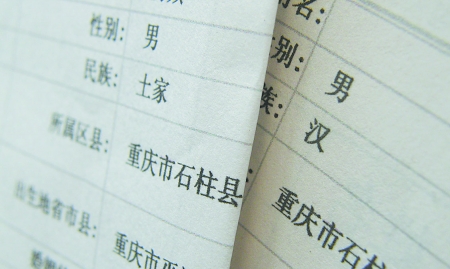 性别: 男
民族: 土家
所属区县: 重庆市石柱县
出生地省市县: 重庆市
名:
性别: 男
族: 汉
重庆市石柱